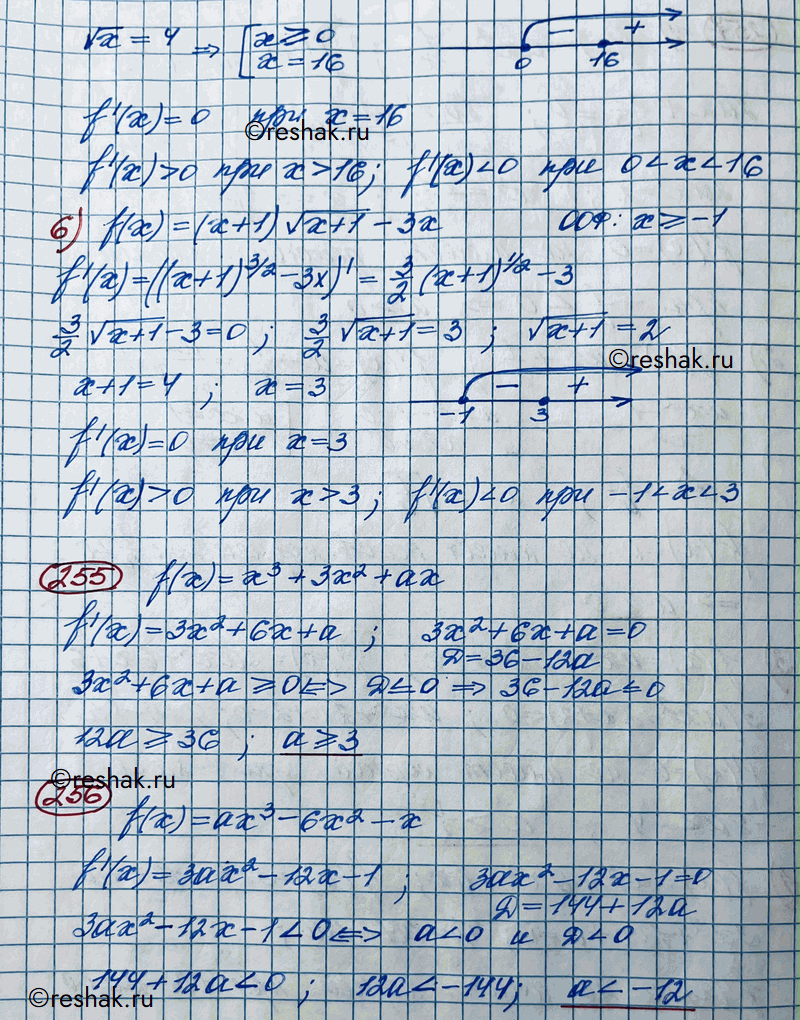 √x = 4 ⇒ [x ≥ 0
x = 16
0 − 16 +
f'(x) = 0 при x = 16
©reshak.ru
f'(x) > 0 при x > 16; f'(x) < 0 при 0 < x < 16
6) f(x) = (x+1)√x+1 − 3x ООФ: x ≥ −1
f'(x) = ((x+1)^3/2 − 3x)' = 3/2 (x+1)^1/2 − 3
3/2 √x+1 − 3 = 0; 3/2 √x+1 = 3; √x+1 = 2
©reshak.ru
x+1 = 4; x = 3
−1 − 3 +
f'(x) = 0 при x = 3
f'(x) > 0 при x > 3; f'(x) < 0 при −1 < x < 3
255 f(x) = x³ + 3x² + ax
f'(x) = 3x² + 6x + a; 3x² + 6x + a = 0
D = 36 − 12a
3x² + 6x + a ≥ 0 ⇔ D ≤ 0 ⇒ 36 − 12a ≤ 0
12a ≥ 36; a ≥ 3
©reshak.ru
256 f(x) = ax³ − 6x² − x
f'(x) = 3ax² − 12x − 1; 3ax² − 12x − 1 = 0
D = 144 + 12a
3ax² − 12x − 1 < 0 ⇔ a < 0 и D < 0
144 + 12a < 0; 12a < −144; a < −12
©reshak.ru